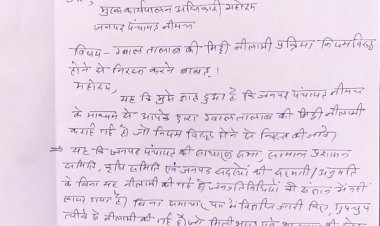 मुख्य कार्यपालन अधिकारी महोदय
जनपद पंचायत नीमच
विषय - ग्वाल तालाब की मिट्टी नीलामी प्रक्रिया नियम विरुद्ध
होने से निरस्त करने बाबत्।
महोदय,
यह कि मुझे ज्ञात हुआ है कि जनपद पंचायत नीमच
के माध्यम से आपके द्वारा ग्वाल तालाब की मिट्टी नीलामी
कराई गई है जो नियम विरुद्ध होने से निरस्त की जावे।
⇒ यह कि जनपद पंचायत की साधारण सभा, सामान्य प्रशासन
समिति, कृषि समिति एवं जनपद सदस्यों की सहमती/अनुमति
के बिना यह नीलामी की गई है जनप्रतिनिधियों को संज्ञान में नहीं
लाया गया है। बिना समाचार पत्र में विज्ञप्ति जारी किए, गुपचुप
तरीके से नीलामी की गई है।